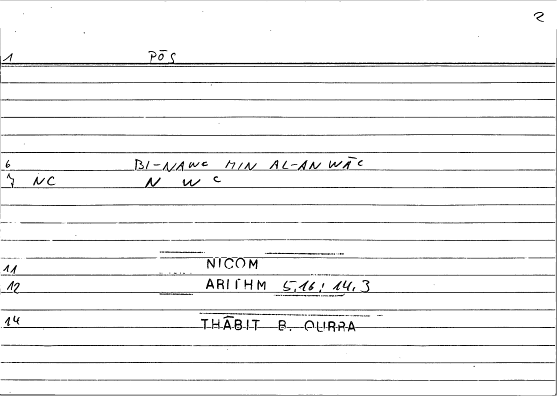 2
1 PŌS
6 BI-NAWC MIN AL-ANWĀC
7 NC N W C
11 NICOM
12 ARITHM 5,16; 14,3
14 THĀBIT B. QURRA